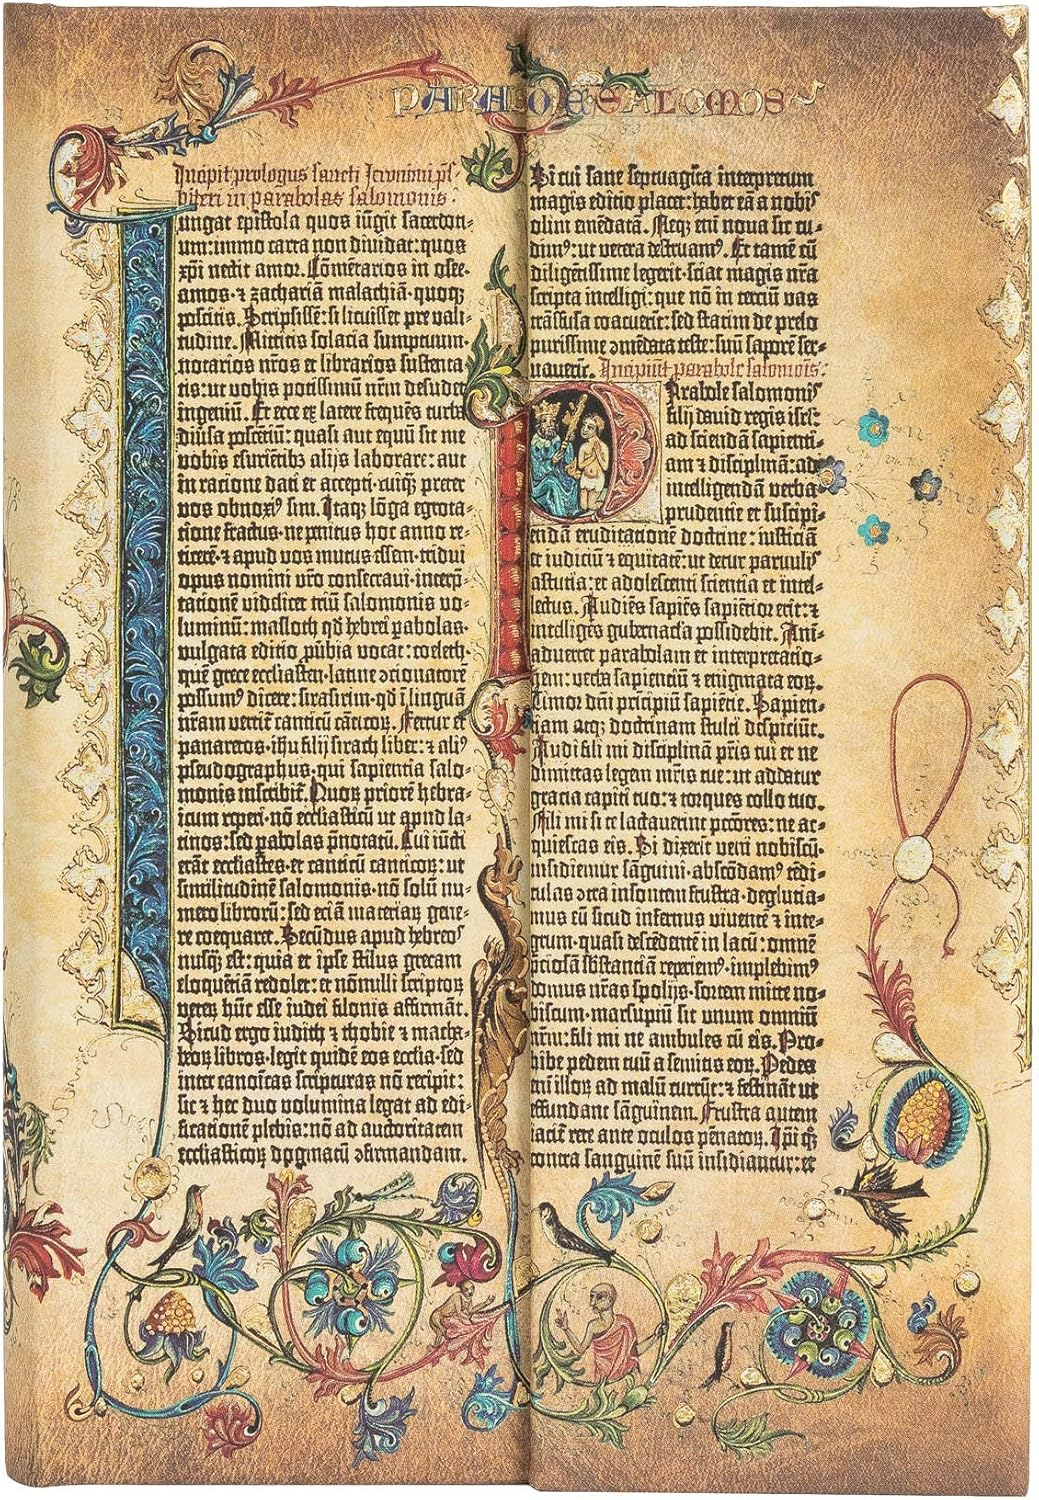 PARABOLE SALOMOS
Incipit prologus sancti Jeronimi p̄s-
biteri in parabolas salomonis.
Iungat epistola quos iūgit sacerdoti-
um: immo carta non diuidat: quos
xp̄i nectit amor. Cōmētarios in osee.
amos. ⁊ zachariā malachiā. quoq;
poscitis. Scripsissē: si licuisset pre vali-
tudine. Mittitis solacia sumptuum.
notarios nr̄os et librarios sustenta-
tis: ut vobis potissimū nr̄m desudet
ingeniū. Et ecce ex latere frequēs turba
diūsa poscētiū: quasi aut equū sit me
vobis esuriētibꝫ alijs laborare: aut
in racione dati et accepti. cuiq̄; preter
vos obnoxiꝰ sim. Itaq; lōga egrota-
cione fractus. ne penitus hoc anno re-
ticerē. ⁊ apud vos mutus essem. tridui
opus nomini vr̄o consecraui. interp̄-
tationē videlicet triū salomonis vo-
luminū: masloth qd̄ hebrei ꝑabolas.
vulgata editio ꝓūbia vocat: coeleth.
quē grece ecclesiasten. latine ↄcionatorē
possumꝰ dicere: sirasirim. qd̄ ī linguā
nr̄am vertit̄ canticū cāticoꝝ. Fertur et
panaretos. ihu filij sirach liber: ⁊ aliꝰ
pseudographus. qui sapientia salo-
monis inscribit̄. Quoꝝ priorē hebra-
icum reperi. nō ecclesiasticū ut apud la-
tinos: sed ꝑabolas p̄notatū. Cui iūcti
erāt ecclesiastes. et canticū canticoꝝ: ut
similitudinē salomonis. nō solū nu-
mero librorū: sed eciā materiaꝝ gene-
re coequaret. Secūdus apud hebreoꝰ
nusq̄ est: quia et ipse stilus grecam
eloquētiā redolet: et nōnulli scriptoꝝ
veteꝝ hūc esse iudei filonis affirmāt.
Sicud ergo iudith ⁊ thobie ⁊ macha-
beoꝝ libros. legit quidē eos ecclia. sed
inter canoīcas scripturas nō recipit:
sic ⁊ hec duo volumina legat ad edi-
ficationē plebis: nō ad auctoritatem
ecclesiasticoꝝ dogmatū ↄfirmandam.
Si cui sane septuagīta interpretum
magis editio placet: habet eā a nobis
olim emēdatā. Neq; em̄ noua sic cu-
dimꝰ: ut vetera destruamꝰ. Et tamē cū
diligētissime legerit. sciat magis nr̄a
scripta intelligi: que nō in terciū vas
trāsfusa coacuerīt: sed statim de prelo
purissime ↄmēdata teste: suū saporē ser-
uauerīt. Incipiūt parabole salomōis.
Parabole salomonis
filij dauid regis isrl̄:
ad sciendā sapienti-
am ⁊ disciplinā: ad
intelligendā verba
prudentie et suscipi-
endā eruditationē doctrine: iusticiā
et iudiciū ⁊ equitatē: ut detur paruulis
astutia: et adolescenti scientia et intel-
lectus. Audiēs sapiēs sapiētior erit: ⁊
intelligēs gubernacla possidebit. Ani-
aduertet parabolam et interpretatio-
nem: verba sapientiū ⁊ enigmata eoꝝ.
Timor dn̄i principiū sapiētie. Sapien-
tiam atq; doctrinam stulti despiciūt.
Audi fili mi disciplinā pr̄is tui et ne
dimittas legem mr̄is tue: ut addatur
gracia capiti tuo: ⁊ torques collo tuo.
Fili mi si te lactauerint pctōres: ne ac-
quiescas eis. Si dixerīt veni nobiscū.
insidiemur sāguini. abscōdamꝰ tēdi-
culas ↄtra insontem frustra. deglutia-
mus eū sicud infernus viuentē ⁊ inte-
grum. quasi descēdentē in lacū: omnē
p̄ciosā sb̄stanciā reperiemꝰ. implebimꝰ
domus nr̄as spolijs. sortem mitte no-
biscum. marsupiū sit unum omniū
nr̄m: fili mi ne ambules cū eis. Pro-
hibe pedem tuū a semitis eoꝝ. Pedes
em̄ illoꝝ ad malū currūt: ⁊ festināt ut
effundant sāguinem. Frustra autem
iacit̄ rete ante oculos pēnatoꝝ. Ip̄i q̄ꝫ
contra sanguinē suū insidiantur: et